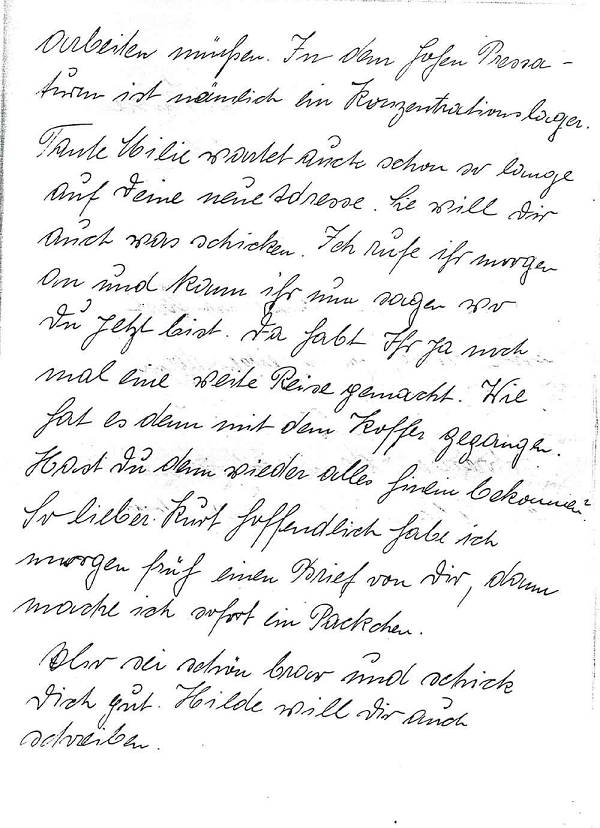 arbeiten müßen. In dem hohen Pressa-
turm ist nämlich ein Konzentrationslager.
Tante Milie wartet auch schon so lange
auf Deine neue Adresse. Sie will Dir
auch was schicken. Ich rufe ihr morgen
an und kann ihr nun sagen wo
Du jetzt bist. Da habt Ihr ja noch
mal eine weite Reise gemacht. Wie
hat es denn mit dem Koffer gegangen.
Hast Du denn wieder alles hinein bekommen?
So lieber Kurt hoffendlich habe ich
morgen früh einen Brief von Dir, dann
mache ich sofort ein Päckchen.
Also sei schön brav und schick
Dich gut. Hilde will Dir auch
schreiben.